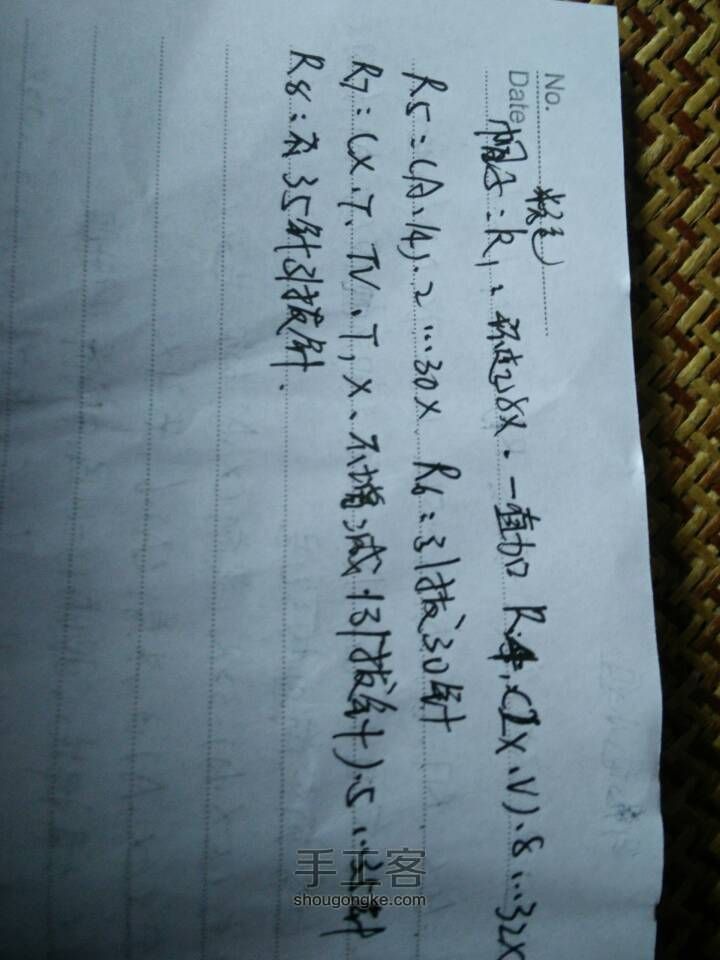 No.
Date
棕色
帽子：R1、环起8X．一直加 R4，(2X、V).8…32X
R5：(A、14)、2…30X R6：引拔30针
R7：(X、T、TV、T，X、不增减．引拔针).5…
R8：不35针引拔针．
手工客
shougongke.com